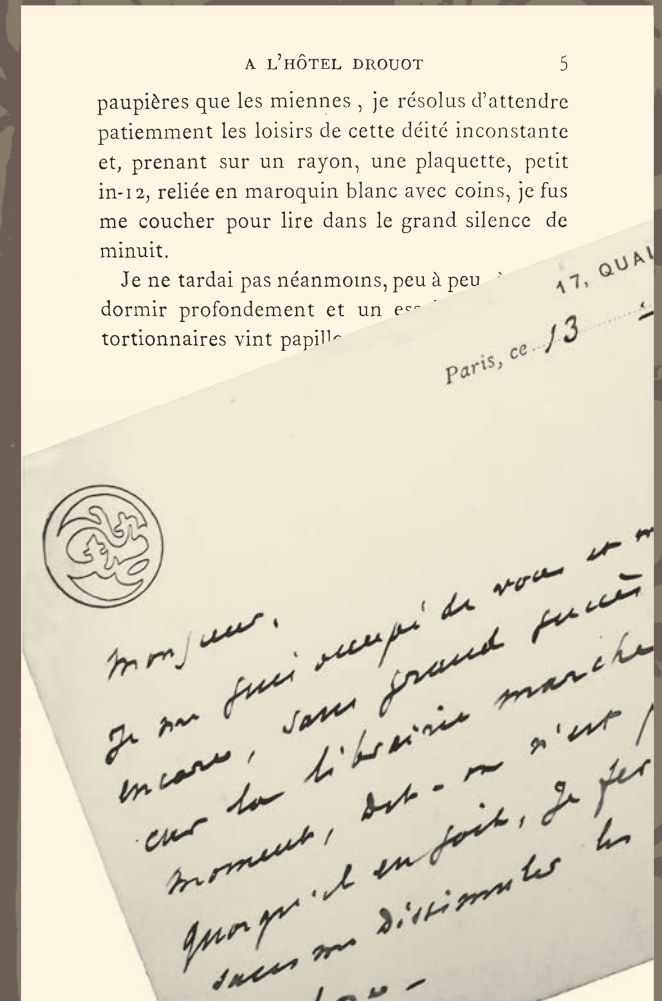 A L’HÔTEL DROUOT 5
paupières que les miennes , je résolus d’attendre
patiemment les loisirs de cette déité inconstante
et, prenant sur un rayon, une plaquette, petit
in-12, reliée en maroquin blanc avec coins, je fus
me coucher pour lire dans le grand silence de
minuit.
Je ne tardai pas néanmoins, peu à peu
dormir profondement et un
tortionnaires vint
17, QUAI
Paris, ce 13
Monsieur,
Je me suis occupé de vous et
encore, sans grand succès
car la librairie marche
moment, dit-on n'est
quoiqu'il en soit, je
sans me dissimuler les